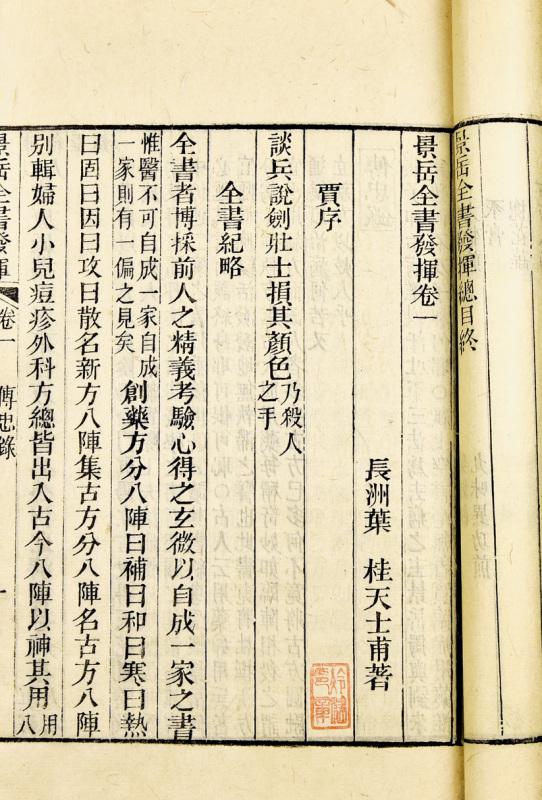 景岳全書發揮總目終
景岳全書發揮卷一
長洲葉　桂天士甫著
賈序
談兵說劍壯士損其顏色乃殺人之手
全書紀略
全書者博採前人之精義考驗心得之玄微以自成一家之書
惟醫不可自成一家自成一家則有一偏之見矣創藥方分八陣曰補曰和曰寒曰熱
曰固曰因曰攻曰散名新方八陣集古方分八陣名古方八陣
別輯婦人小兒痘疹外科方總皆出入古今八陣以神其用用八
景岳全書發揮 卷一 傳忠錄 一